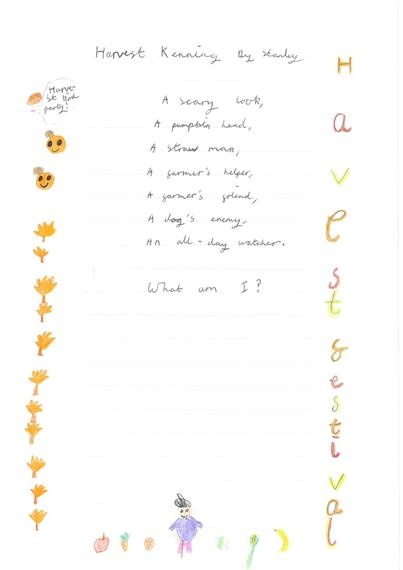 Harvest Kenning By Stanley
Harve
st
party!
A scary look,
A pumpkin head,
A straw man,
A farmer's helper,
A farmer's friend,
A dog's enemy,
An all-day watcher.
What am I?
Havest festival